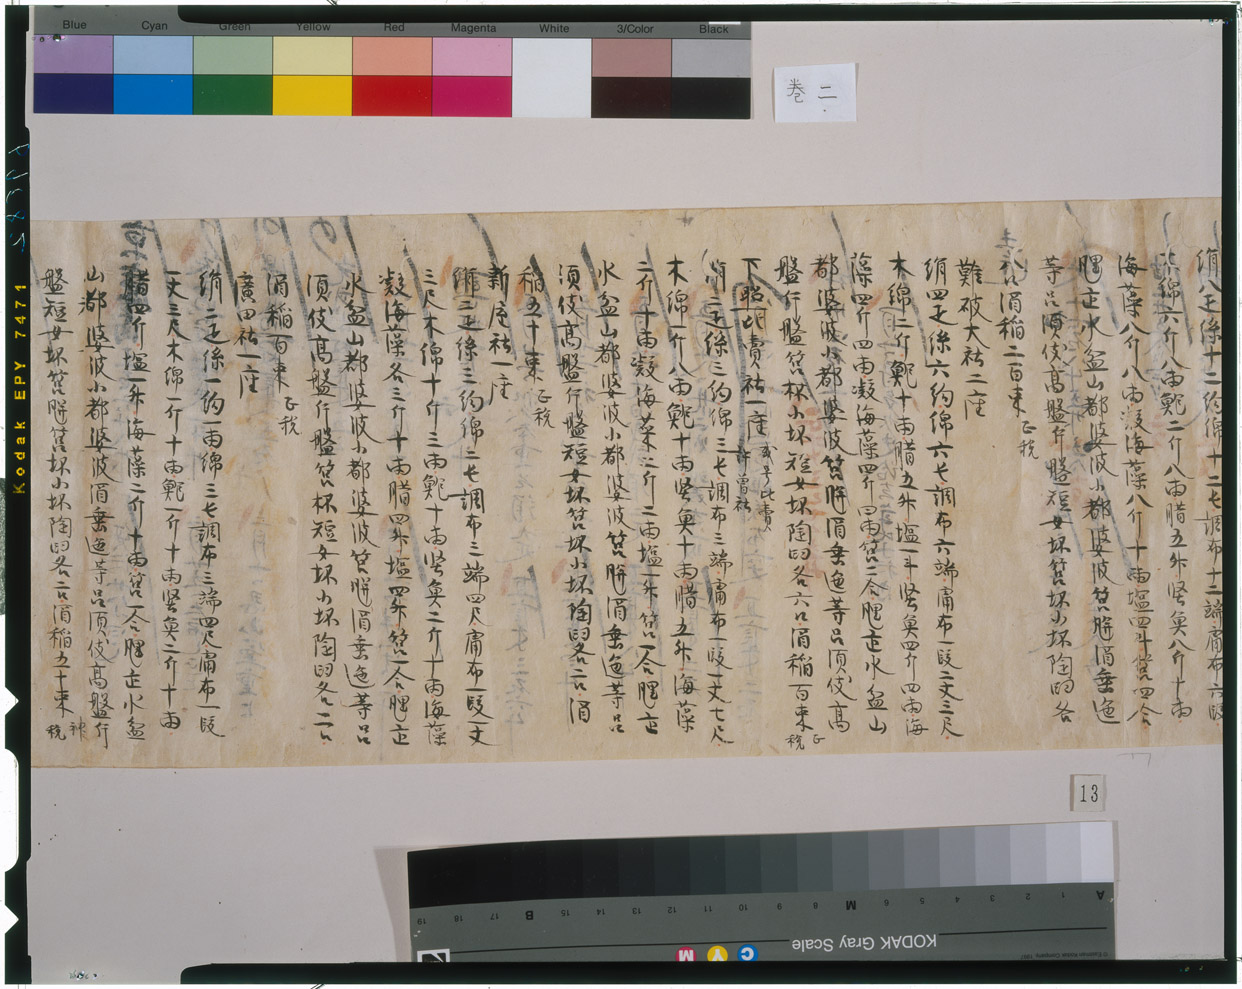 Blue Cyan Green Yellow Red Magenta White 3/Color Black
巻二
絹八疋絲十二絇綿十二屯調布十二端庸布六段
木綿六斤八両鰒二斤八両腊五斗堅魚八斤十両
海藻八斤八両凝海藻八斤十両塩四斗筥四合
醴缶水盆山都婆波小都婆波筥瓶酒垂匜
等呂須伎高盤片盤短女坏筥坏小坏陶臼各
八口酒稲二百束 正税
難破大社二座
絹四疋絲六絇綿六屯調布六端庸布一段二丈三尺
木綿二斤鰒十両腊五斗塩一斗堅魚四斤四両海
藻四斤四両凝海藻四斤四両筥二合醴缶水盆山
都婆波小都婆波筥瓶酒垂匜等呂須伎高
盤片盤筥杯小坏短女坏陶臼各六口酒稲百束 正税
下照比賣社一座 或号比賣許曽社
絹二疋絲三絇綿三屯調布三端庸布一段一丈七尺
木綿一斤八両鰒十両堅魚十両腊五斗海藻
二斤十両凝海菜二斤二両塩一斗筥一合醴缶
水盆山都婆波小都婆波筥瓶酒垂匜等呂
須伎高盤片盤短女坏筥坏小坏陶臼各二口酒
稲五十束 正税
新屋社一座
絹三疋絲三絇綿二屯調布三端四尺庸布一段一丈
三尺木綿十斤三両鰒十両堅魚二斤十両海藻
凝海藻各三斤十両腊四斗塩四斗筥一合醴缶
水盆山都婆波小都婆波筥瓶酒垂匜等呂
須伎高盤片盤筥杯短女坏小坏陶臼各二口
酒稲百束 正税
廣田社一座
絹二疋絲一絇一両綿三屯調布三端四尺庸布一段
一丈三尺木綿一斤十両鰒一斤十両堅魚二斤十両
腊四斤塩一斗海藻二斤十両筥一合醴缶水盆
山都婆波小都婆波酒垂匜等呂須伎高盤片
盤短女坏筥瓶筥坏小坏陶臼各二口酒稲五十束 神税
13
Kodak EPY 7471
KODAK Gray Scale
A 1 2 3 4 5 6 M 8 9 10 11 12 13 14 15 B 17 18 19
C Y M